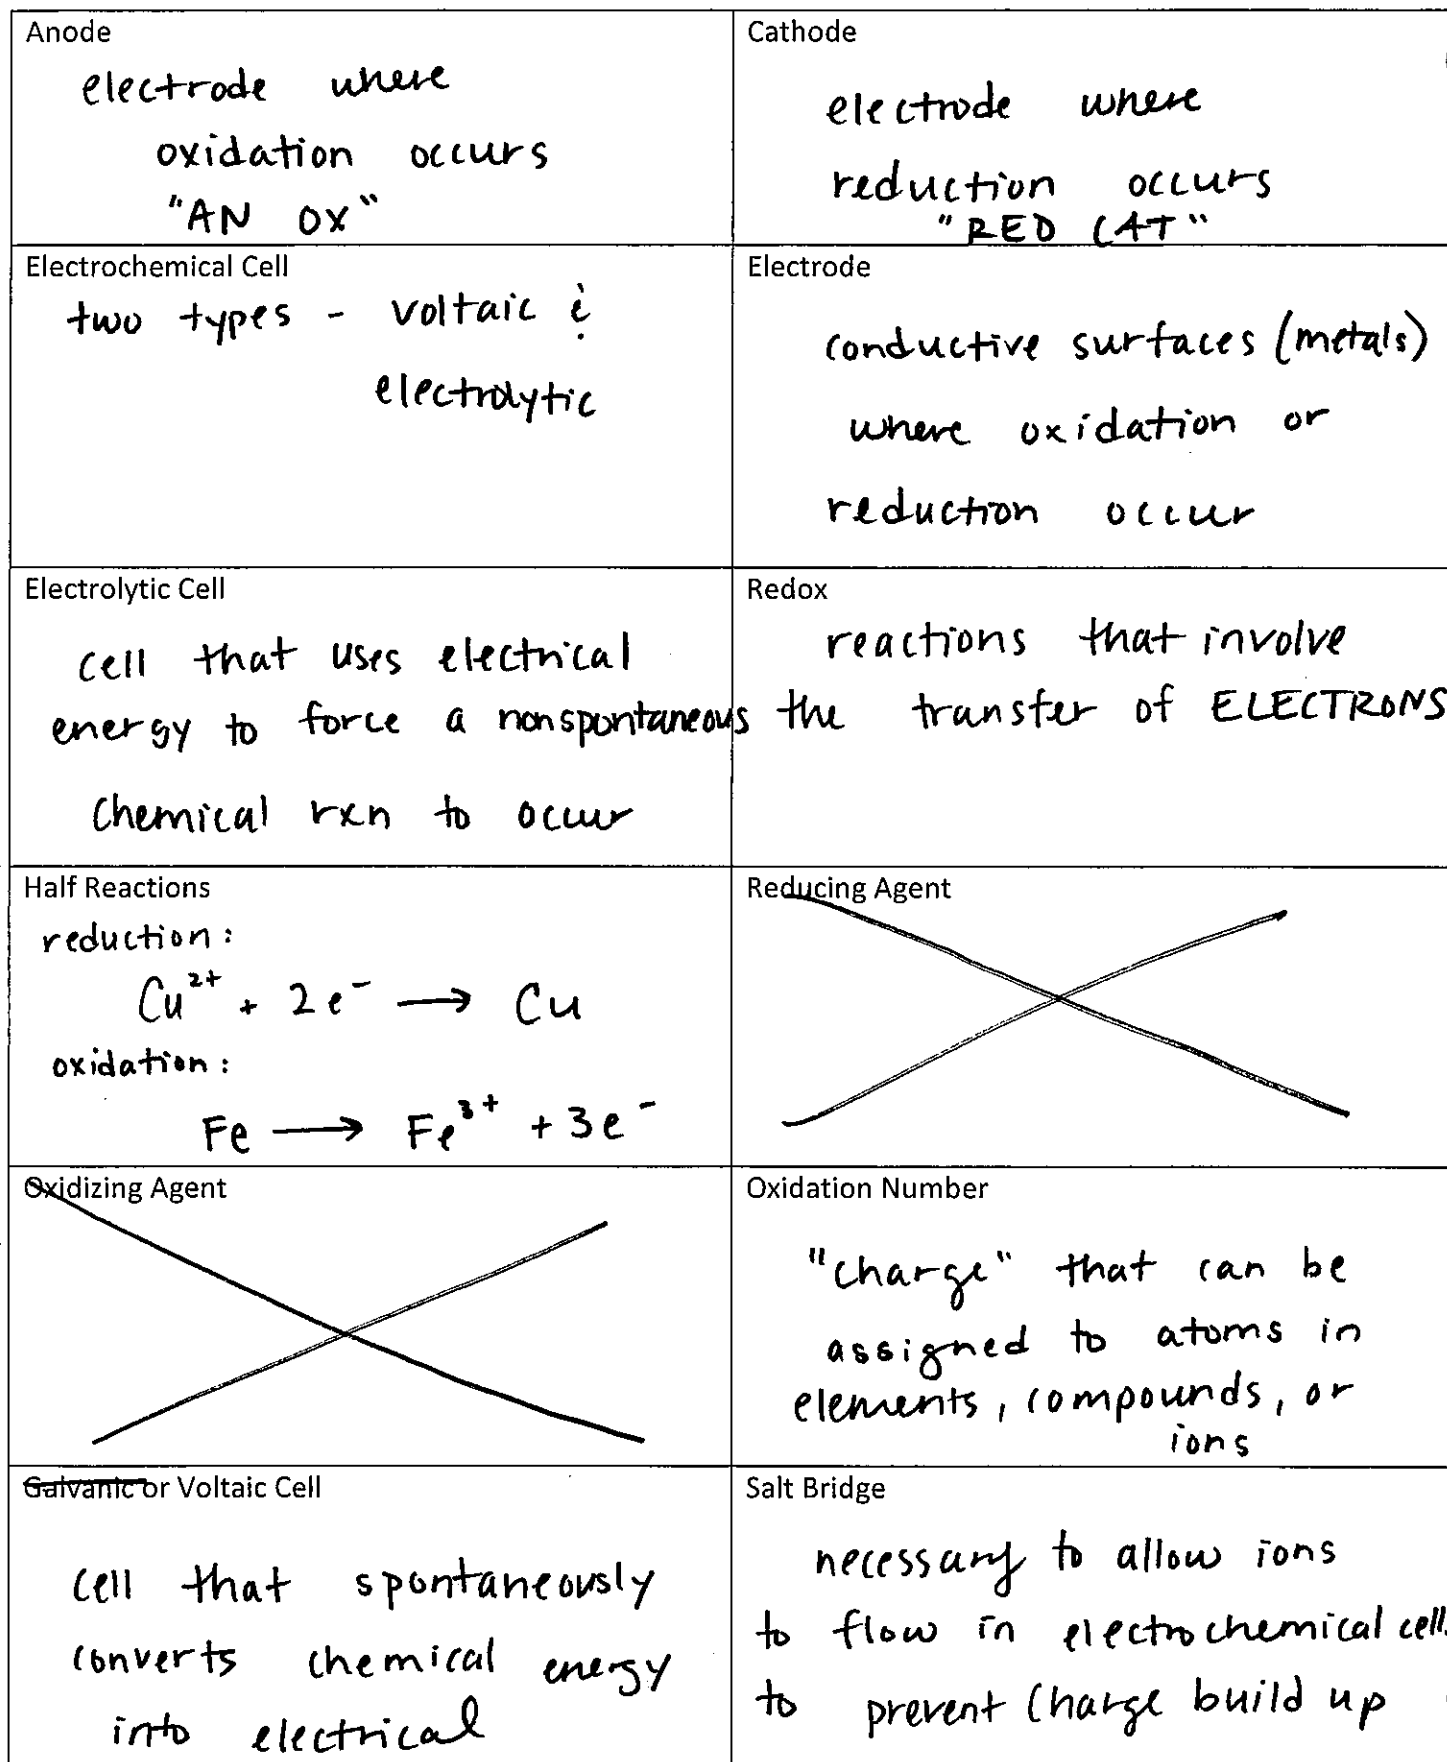 Anode
electrode where
oxidation occurs
"AN OX"
Cathode
electrode where
reduction occurs
"RED CAT"
Electrochemical Cell
two types - voltaic &
electrolytic
Electrode
conductive surfaces (metals)
where oxidation or
reduction occur
Electrolytic Cell
cell that uses electrical
energy to force a nonspontaneous
chemical rxn to occur
Redox
reactions that involve
the transfer of ELECTRONS
Half Reactions
reduction:
Cu²⁺ + 2e⁻ → Cu
oxidation:
Fe → Fe³⁺ + 3e⁻
Reducing Agent
Oxidizing Agent
Oxidation Number
"charge" that can be
assigned to atoms in
elements, compounds, or
ions
Galvanic or Voltaic Cell
cell that spontaneously
converts chemical energy
into electrical
Salt Bridge
necessary to allow ions
to flow in electrochemical cells
to prevent charge build up